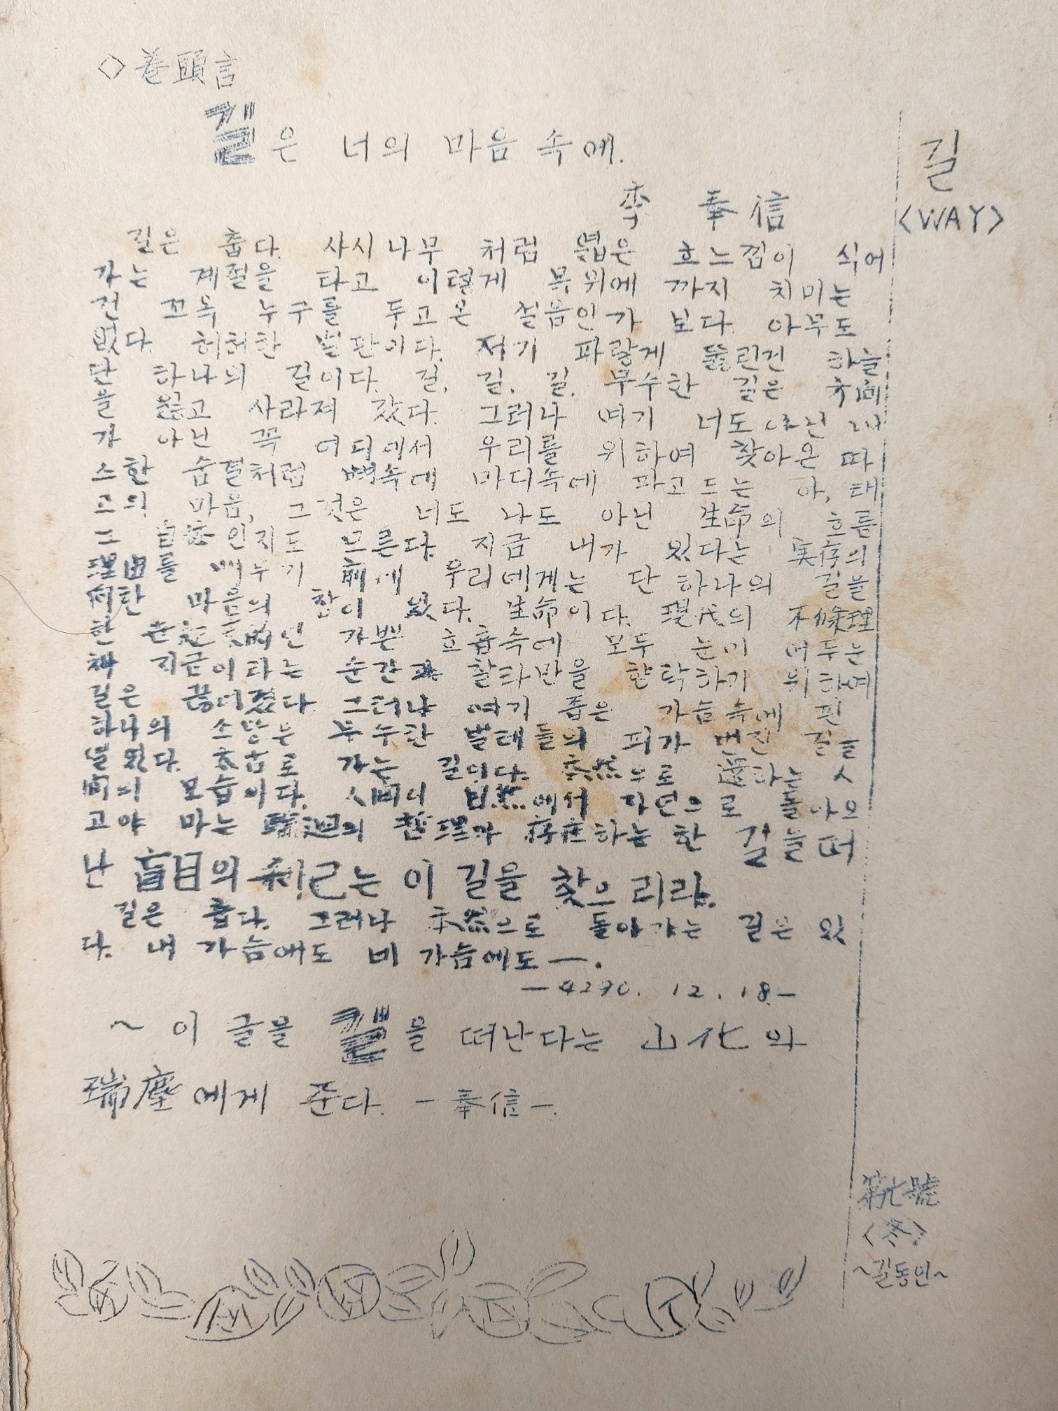 ◇ 卷頭言
길은 너의 마음 속에.
李 奉信
길은 춥다. 사시나무 처럼 엷은 흐느낌이 식어
가는 계절을 타고 이렇게 목위에 까지 치미는
건 꼬옥 누구를 두고온 설음인가 보다. 아무도
없다. 허허한 벌판이다. 저기 파랗게 뚫린건 하늘
단 하나의 길이다. 길. 길. 길. 무수한 길은 方向
을 잃고 사라져 갔다. 그러나 여기 너도 아닌 내
가 아닌 꼭 어디에서 우리를 위하여 찾아온 따
스한 숨결처럼 뼈속에 마디속에 파고드는 아, 태
고의 마음, 그것은 너도 나도 아닌 生命의 흐름
그 自体인지도 모른다. 지금 내가 있다는 実存의
理由를 배우기 前에 우리에게는 단 하나의 길을
向한 마음의 창이 있다. 生命이다. 現代의 不條理
한 가쁜 호흡속에 모두 눈이 어두는
채 지금이라는 순간과 찰라만을 향락하기 위하여
길은 끊어졌다 그러나 여기 좁은 가슴속에 핀
하나의 무수한 벌레들의 피가 번진 길을
太古로 가는 길이다. 本然으로 還하는 人
間의 모습이다. 人間이 自然에서 자연으로 돌아오
고야 마는 輪廻의 哲理가 存在하는 한 길을 떠
난 盲目의 利己는 이 길을 찾으리라.
길은 춥다. 그러나 本然으로 돌아가는 길은 있
다. 내 가슴에도 네 가슴에도 —.
—4290. 12. 18.—
~ 이 글을 길을 떠난다는 山化와
瑞塵에게 준다. — 奉信 —.
길
<WAY>
第七號
<冬>
~길동인~